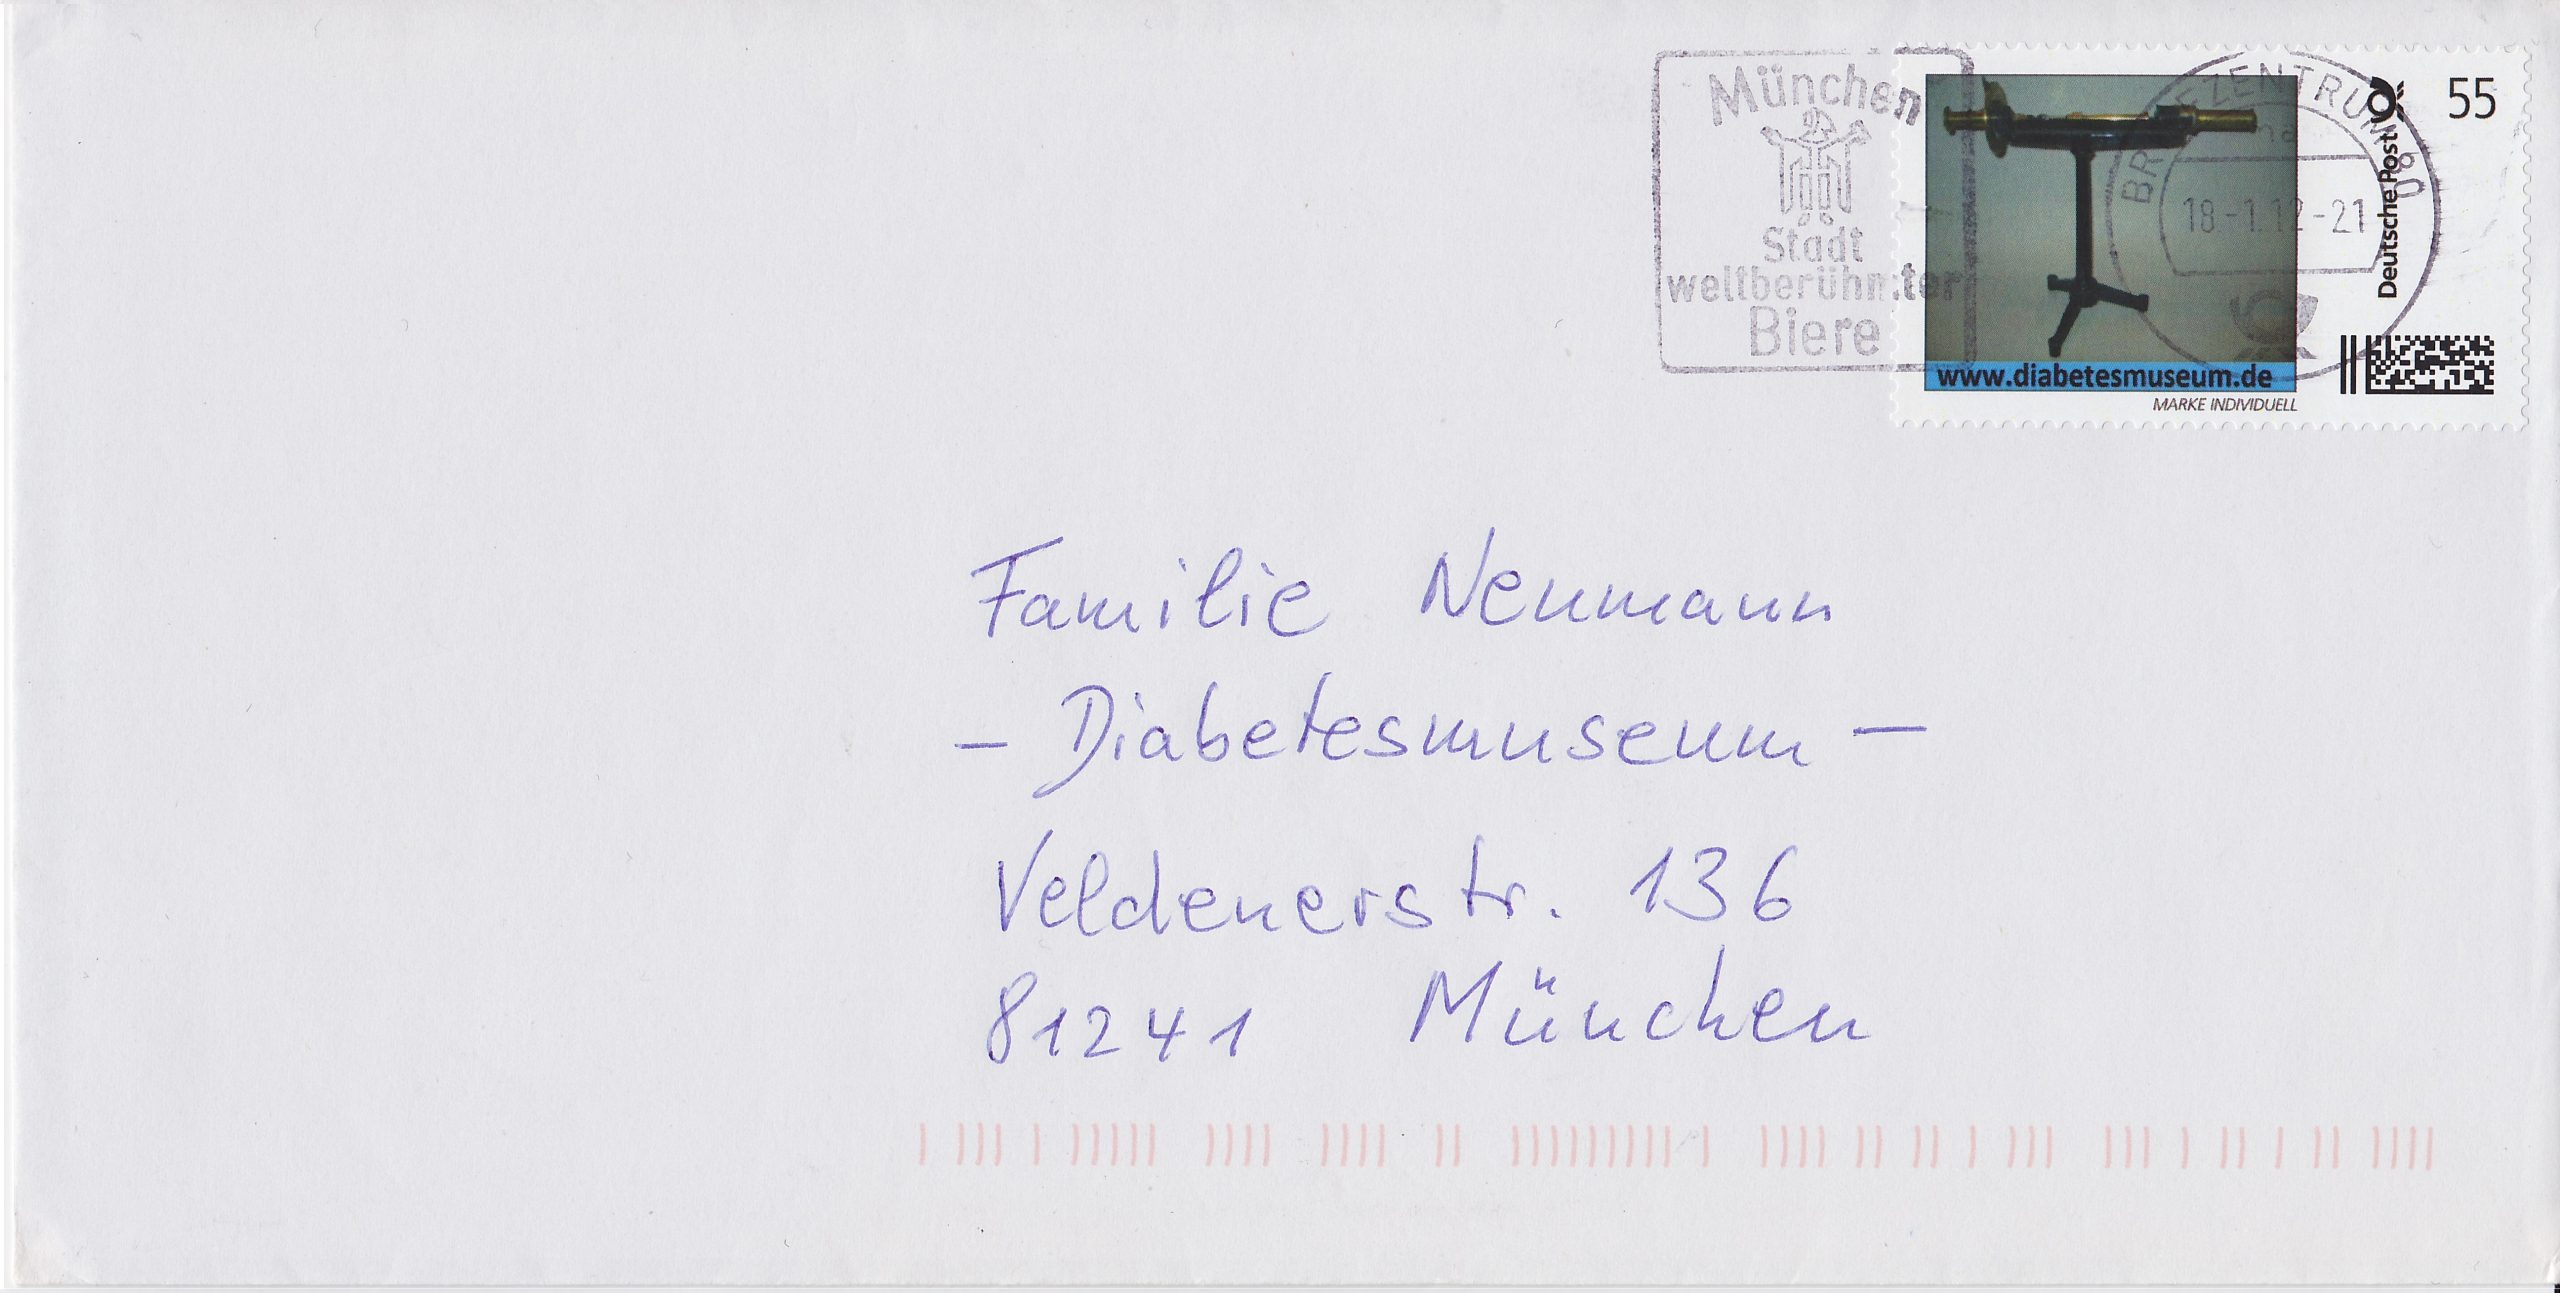 München
Stadt
weltberühmter
Biere
BRIEFZENTRUM 80
18-1.12-21
Deutsche Post
55
www.diabetesmuseum.de
MARKE INDIVIDUELL
Familie Neumann
- Diabetesmuseum -
Veldenerstr. 136
81241 München